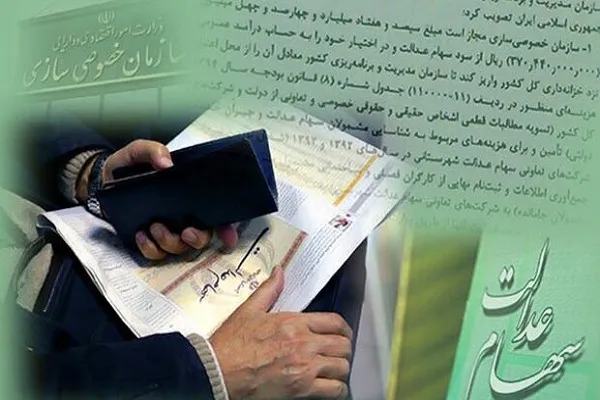 وزارت امور اقتصادی و دارایی
سازمان خصوصی سازی
سازمان مدیریت و برنامه
جمهوری اسلامی ایران تصویب کرد:
۱- سازمان خصوصی‌سازی مجاز است مبلغ سیصد و هفتاد میلیارد و چهارصد و چهل میلیون
(۳۷۰٫۴۴۰٫۰۰۰٫۰۰۰) ریال از سود سهام عدالت و در اختیار خود را به حساب درآمد عمومی
نزد خزانه‌داری کل کشور واریز کند تا سازمان مدیریت و برنامه‌ریزی کشور معادل آن را از محل اعتبار
هزینه‌ای منظور در ردیف (۱۱-۱۱۰۰۰۰) جدول شماره (۸) قانون بودجه سال ۱۳۹۴
کل کشور (تسویه مطالبات قطعی اشخاص حقیقی و حقوقی خصوصی و تعاونی از دولت و شرکت‌های
دولتی) تأمین و برای هزینه‌های مربوط به شناسایی مشمولان سهام عدالت و جبران
شرکت‌های تعاونی سهام عدالت شهرستانی در ۱۳۹۲ و ۱۳۹۳
جمع‌آوری اطلاعات و ثبت‌نام نهایی از کارگران فصلی و
جامانده) به شرکت‌های تعاونی سهام عدالت
سهام عدالت
سهام عدالت